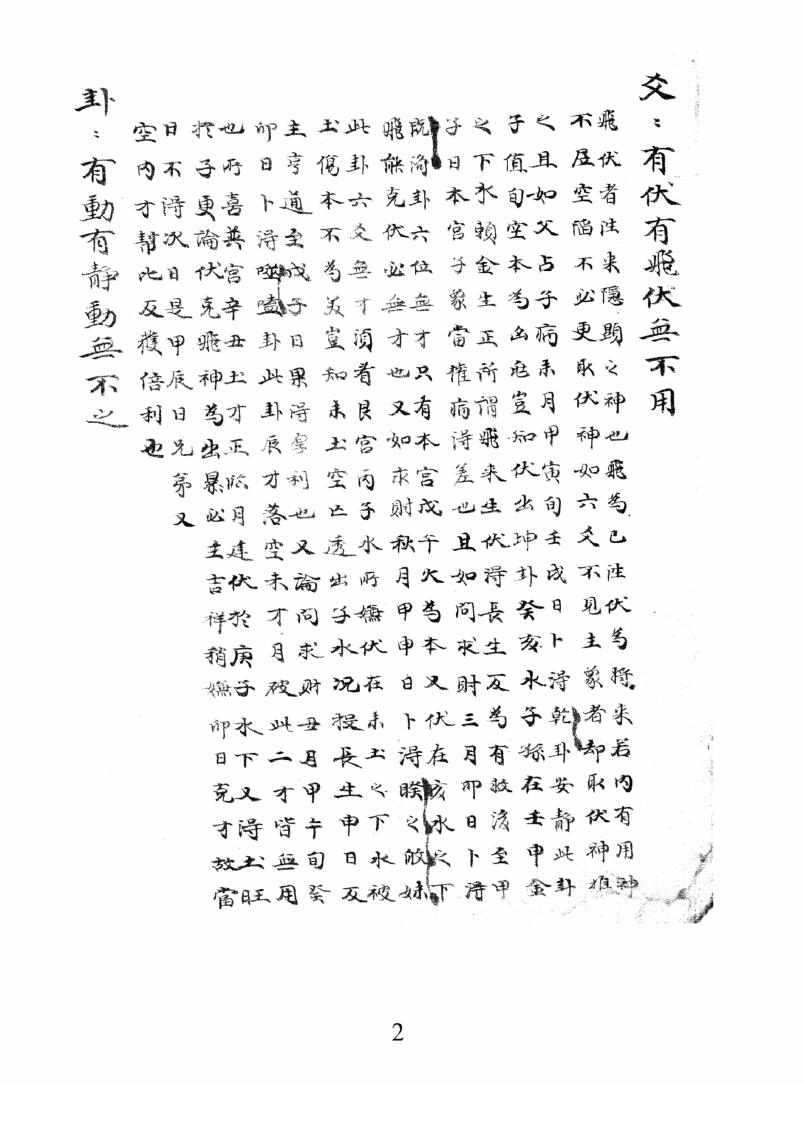 爻〻有伏有飛伏無不用
飛伏者往来隱顯之神也飛為已往伏為将来若内有用神
不居空陷不必更取伏神如六爻不見主象者却取伏神推
之且如父占子病未月甲寅旬壬戌日卜得乾卦安靜此卦
子值旬空本為凶兆豈知伏出坤卦癸亥水子孫在壬申金
之下水賴金生正所謂飛来生伏得長生反為有救後至甲
子日本宮子象當權病得差也且如問求財三月卯日卜得
既濟卦六位無才只有本宮戊午火為本又伏在亥水之下
飛能克伏必無才也又如求財秋月甲申日卜得睽之敀妹
此卦六爻無才須看艮宮丙子水所嫌伏在未土之下水被
土傷本不為美豈知未土空亡透出子水况授長生申日反
主亨通至戊子日果得厚利也又論問求财丑月甲午旬癸
卯日卜得噬嗑卦此卦辰才落空未才月破此二才皆無用
也所喜巽宮辛丑土才正臨月建伏於庚子水下又得土旺
於子更論伏克飛神為出暴必主吉祥稍嫌卯日克才故當
日不得次日是甲辰日兄弟又
空内才幫比反獲倍利也
卦〻有動有靜動無不之
2